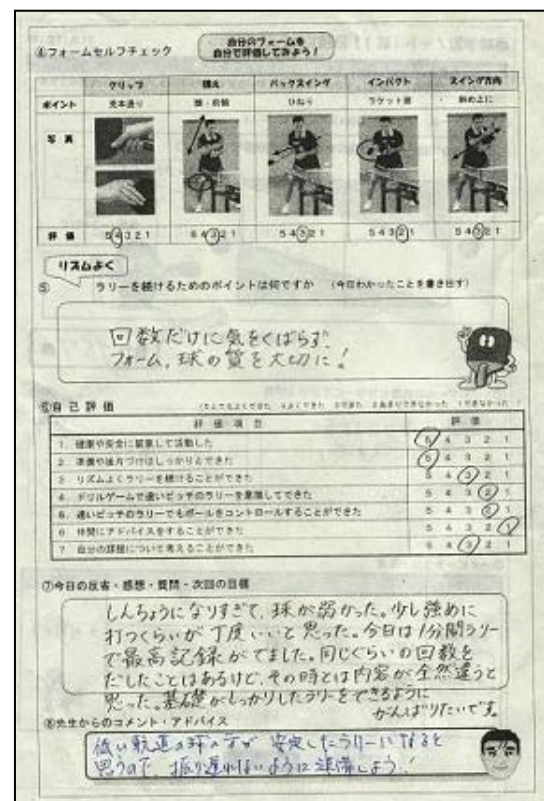 ④フォームセルフチェック
自分のフォームを
自分で評価してみよう！
グリップ 構え バックスイング インパクト スイング方向
ポイント 見本通り 腰・前傾 ひねり ラケット面 斜め上に
写真
評価 5 4 3 2 1 5 4 3 2 1 5 4 3 2 1 5 4 3 2 1 5 4 3 2 1
リズムよく
⑤ ラリーを続けるためのポイントは何ですか （今日わかったことを書き出す）
回数だけに気をくばらず、
フォーム、球の質を大切に！
⑥自己評価 （5とてもよくできた 4よくできた 3できた 2あまりできなかった 1できなかった）
評価項目 評価
1. 健康や安全に留意して活動した 5 4 3 2 1
2. 準備や後片づけはしっかりとできた 5 4 3 2 1
3 リズムよくラリーを続けることができた 5 4 3 2 1
4. ドリルゲームで速いピッチのラリーを意識してできた 5 4 3 2 1
5. 速いピッチのラリーでもボールをコントロールすることができた 5 4 3 2 1
6 仲間にアドバイスをすることができた 5 4 3 2 1
7 自分の課題について考えることができた 5 4 3 2 1
⑦今日の反省・感想・質問・次回の目標
しんちょうになりすぎて、球が弱かった。少し強めに
打つくらいが丁度いいと思った。今日は1分間ラリー
で最高記録がでました。同じくらいの回数を
だしたことはあるけど、その時とは内容が全然違うと
思った。基礎がしっかりしたラリーをできるように
がんばりたいです。
⑧先生からのコメント・アドバイス
低い軌道の球の方が安定したラリーになると
思うので、振り遅れないように準備しよう！